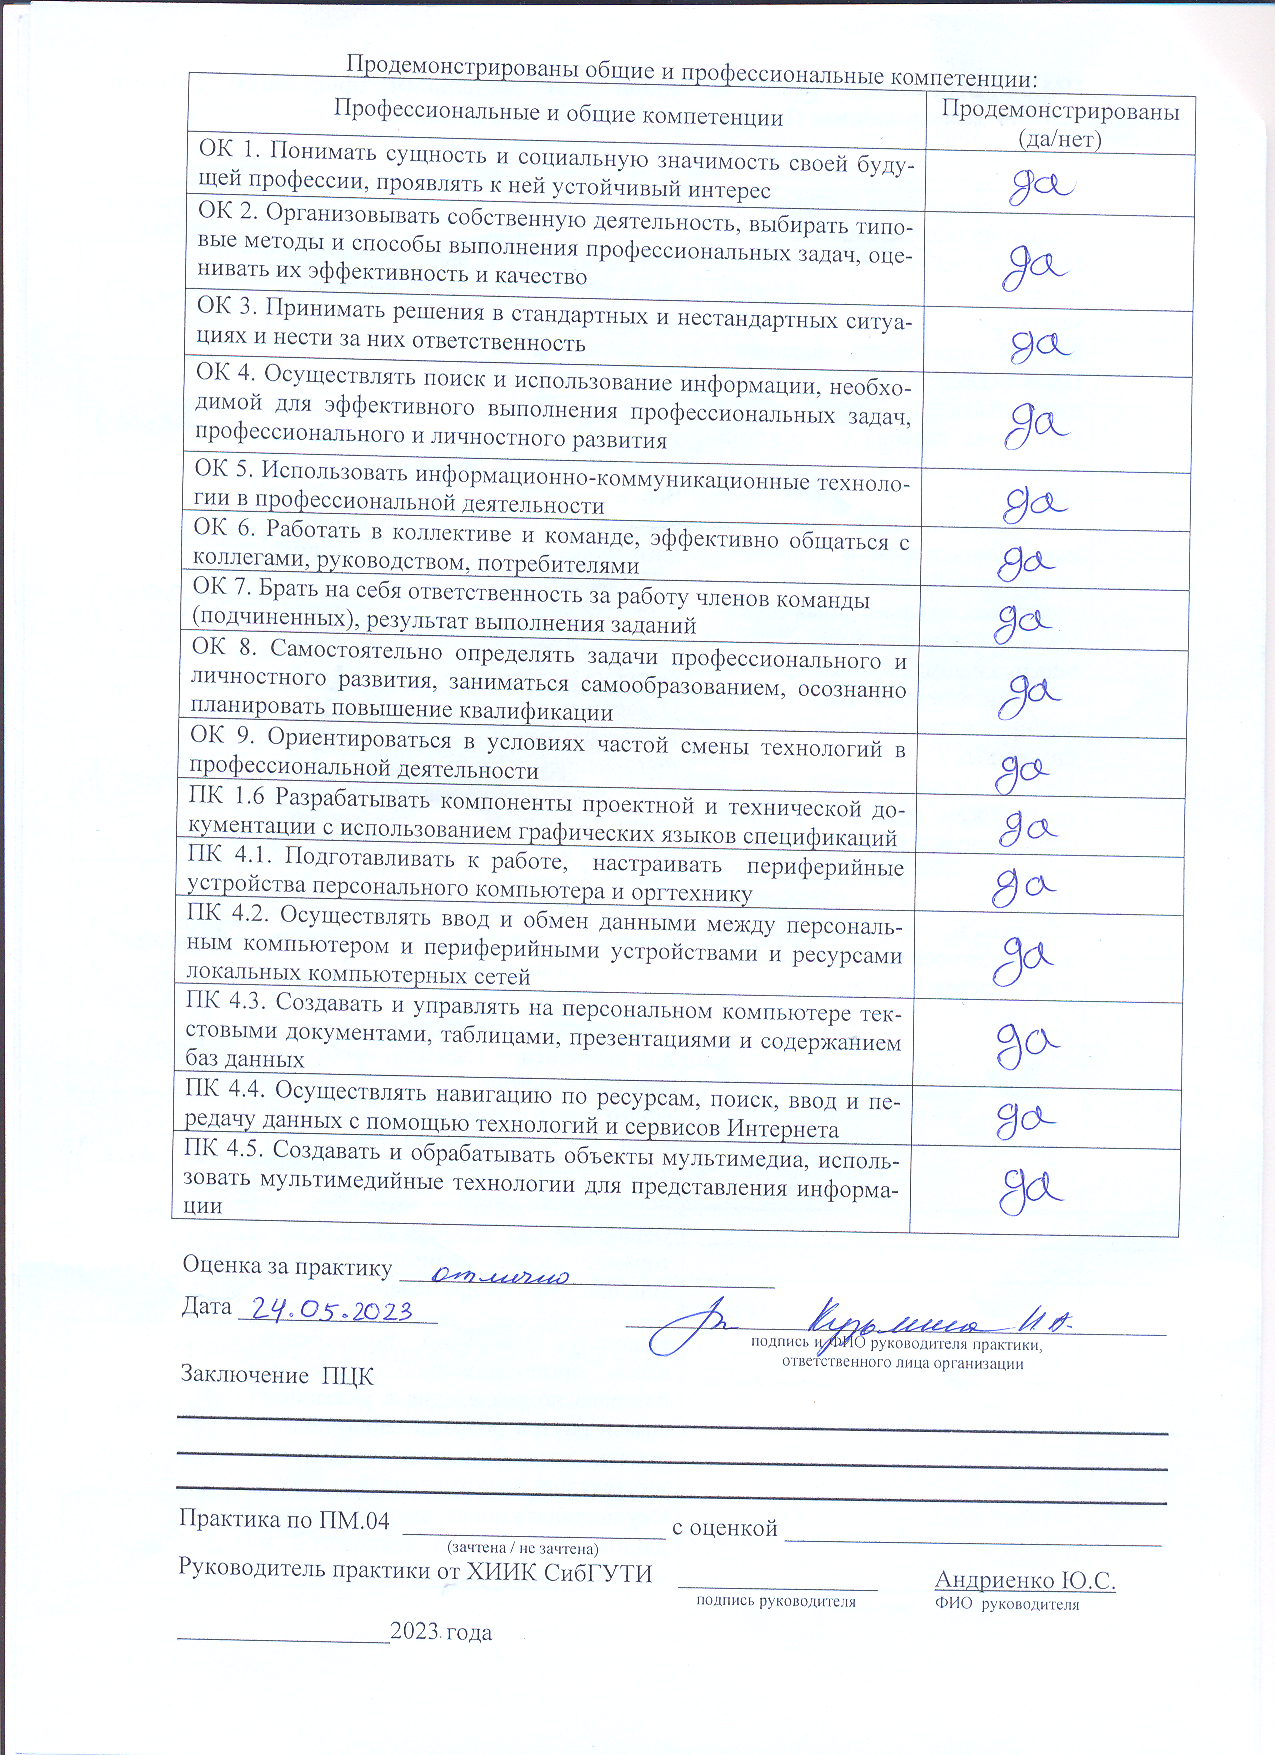 Продемонстрированы общие и профессиональные компетенции:
Профессиональные и общие компетенции
Продемонстрированы
(да/нет)
ОК 1. Понимать сущность и социальную значимость своей буду-
щей профессии, проявлять к ней устойчивый интерес
да
ОК 2. Организовывать собственную деятельность, выбирать типо-
вые методы и способы выполнения профессиональных задач, оце-
нивать их эффективность и качество
да
ОК 3. Принимать решения в стандартных и нестандартных ситуа-
циях и нести за них ответственность
да
ОК 4. Осуществлять поиск и использование информации, необхо-
димой для эффективного выполнения профессиональных задач,
профессионального и личностного развития
да
ОК 5. Использовать информационно-коммуникационные техноло-
гии в профессиональной деятельности
да
ОК 6. Работать в коллективе и команде, эффективно общаться с
коллегами, руководством, потребителями
да
ОК 7. Брать на себя ответственность за работу членов команды
(подчиненных), результат выполнения заданий
да
ОК 8. Самостоятельно определять задачи профессионального и
личностного развития, заниматься самообразованием, осознанно
планировать повышение квалификации
да
ОК 9. Ориентироваться в условиях частой смены технологий в
профессиональной деятельности
да
ПК 1.6 Разрабатывать компоненты проектной и технической до-
кументации с использованием графических языков спецификаций
да
ПК 4.1. Подготавливать к работе, настраивать периферийные
устройства персонального компьютера и оргтехнику
да
ПК 4.2. Осуществлять ввод и обмен данными между персональ-
ным компьютером и периферийными устройствами и ресурсами
локальных компьютерных сетей
да
ПК 4.3. Создавать и управлять на персональном компьютере тек-
стовыми документами, таблицами, презентациями и содержанием
баз данных
да
ПК 4.4. Осуществлять навигацию по ресурсам, поиск, ввод и пе-
редачу данных с помощью технологий и сервисов Интернета
да
ПК 4.5. Создавать и обрабатывать объекты мультимедиа, исполь-
зовать мультимедийные технологии для представления информа-
ции
да
Оценка за практику отлично
Дата 24.05.2023
Кузьмина И А.
подпись и ФИО руководителя практики,
ответственного лица организации
Заключение ПЦК
Практика по ПМ.04 с оценкой
(зачтена / не зачтена)
Руководитель практики от ХИИК СибГУТИ Андриенко Ю.С.
подпись руководителя ФИО руководителя
2023 года